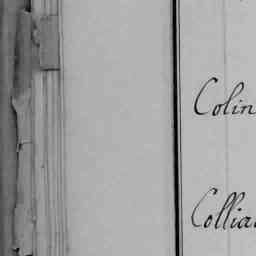 Colin
Collia